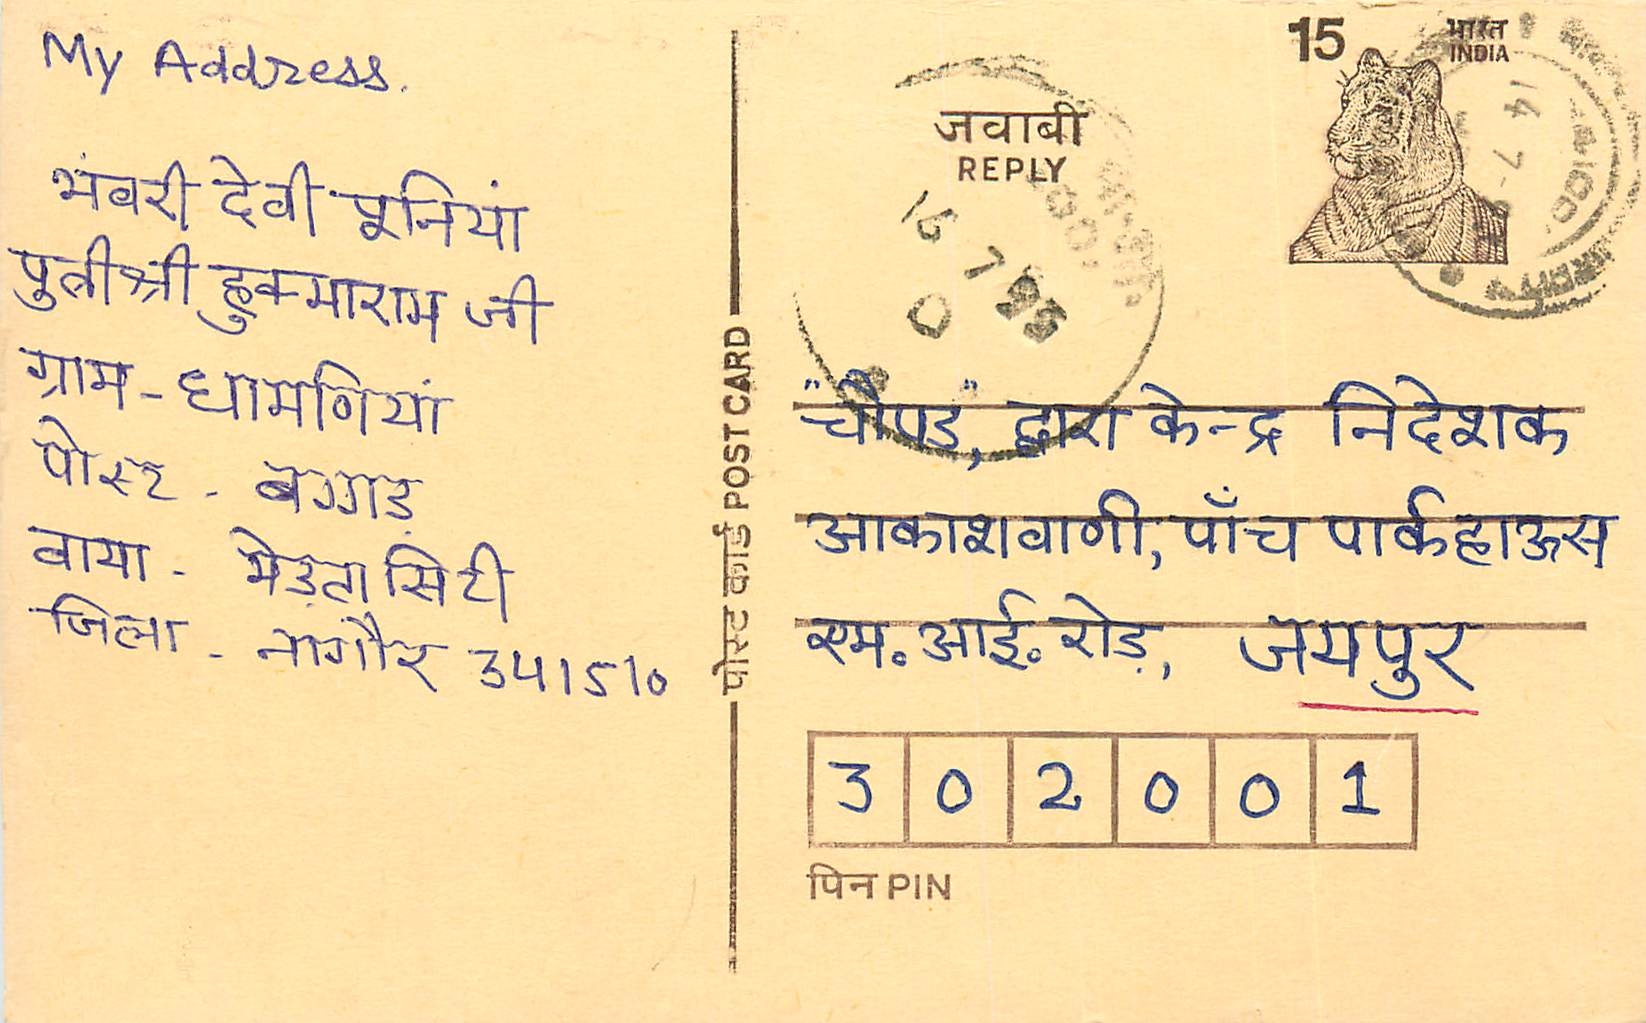 My Address.
भंवरी देवी पूनियां
पुत्रीश्री हुक्माराम जी
ग्राम - धामणियां
पोस्ट - बग्गड़
वाया - मेड़ता सिटी
जिला - नागौर 341510
पोस्ट कार्ड POST CARD
15
भारत
INDIA
14 7
जवाबी
REPLY
15 7 95
"चौपड़", द्वारा केन्द्र निदेशक
आकाशवाणी, पाँच पार्क हाऊस
एम. आई. रोड़, जयपुर
3 0 2 0 0 1
पिन PIN